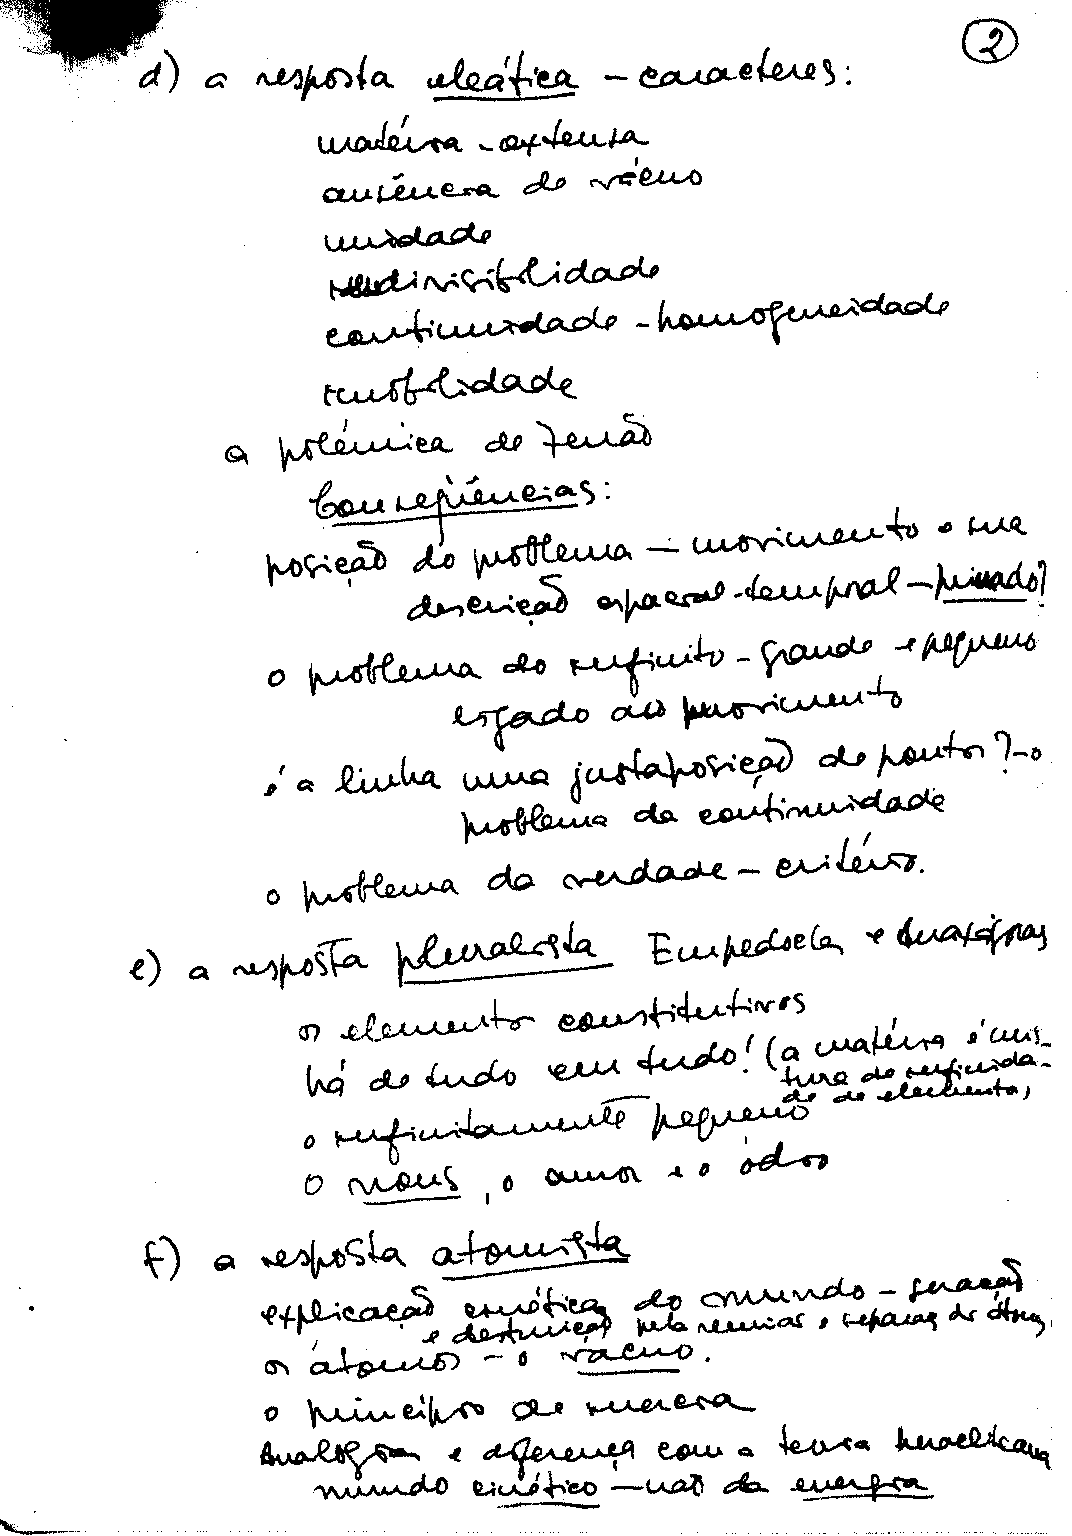 2
d) a resposta eleática - caracteres:
matéria - extensa
ausência de vácuo
unidade
indivisibilidade
continuidade - homogeneidade
imobilidade
a polémica de Zenão
Conseqüências:
posição do problema - movimento e sua
descrição espacial-temporal -
o problema do infinito - grande e pequeno
ligado ao movimento
é a linha uma justaposição de pontos? - o
problema da continuidade
o problema da verdade - critério.
e) a resposta pluralista Empedocles e Anaxágoras
os elementos constitutivos
há de tudo em tudo! (a matéria é mis-
tura de infinida-
de de elementos,
o infinitamente pequeno
O nous, o amor e o ódio
f) a resposta atomista
explicação cinética do mundo - geração
e destruição pela reunião e separaç. dos átomos
os átomos - o vácuo.
o princípio de inércia
Analogia e diferença com a teoria heracliteana
mundo cinético - não da energia